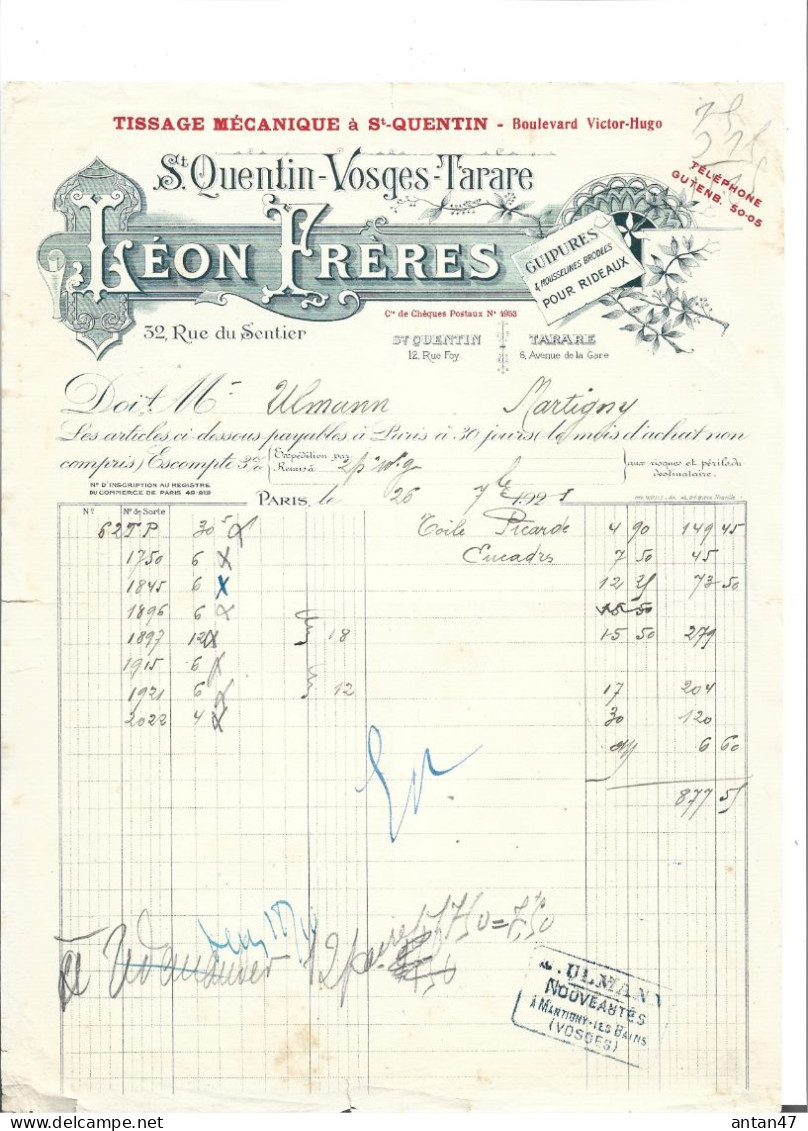 TISSAGE MÉCANIQUE à St-QUENTIN - Boulevard Victor-Hugo
St. Quentin-Vosges-Tarare
TÉLÉPHONE
GUTENB. 50-05
LÉON FRÈRES
GUIPURES
& MOUSSELINES BRODÉES
POUR RIDEAUX
Cte de Chèques Postaux N° 4968
32, Rue du Sentier
St QUENTIN
12, Rue Foy
TARARE
6, Avenue de la Gare
Doit Mr Ulmann Martigny
Les articles ci-dessous payables à Paris à 30 jours (le mois d'achat non
compris) Escompte 3% Expédition par
Remise
aux risques et périls du
destinataire.
N° D'INSCRIPTION AU REGISTRE
DU COMMERCE DE PARIS 48-819
PARIS, le 26 7bre 1925
N° Nos de Sorte
62 TP 30 5 Toile Picarde 4 90 149 45
1750 6 Encadrs 7 50 45
1845 6 12 25 73 50
1896 6 15 50
1897 12 18 15 50 279
1915 6
1921 6 12 17 204
2022 4 30 120
6 60
877 55
12 paires 17,50 = 7,50
ULMANN
NOUVEAUTÉS
A MARTIGNY-LES-BAINS
(VOSGES)
antan47